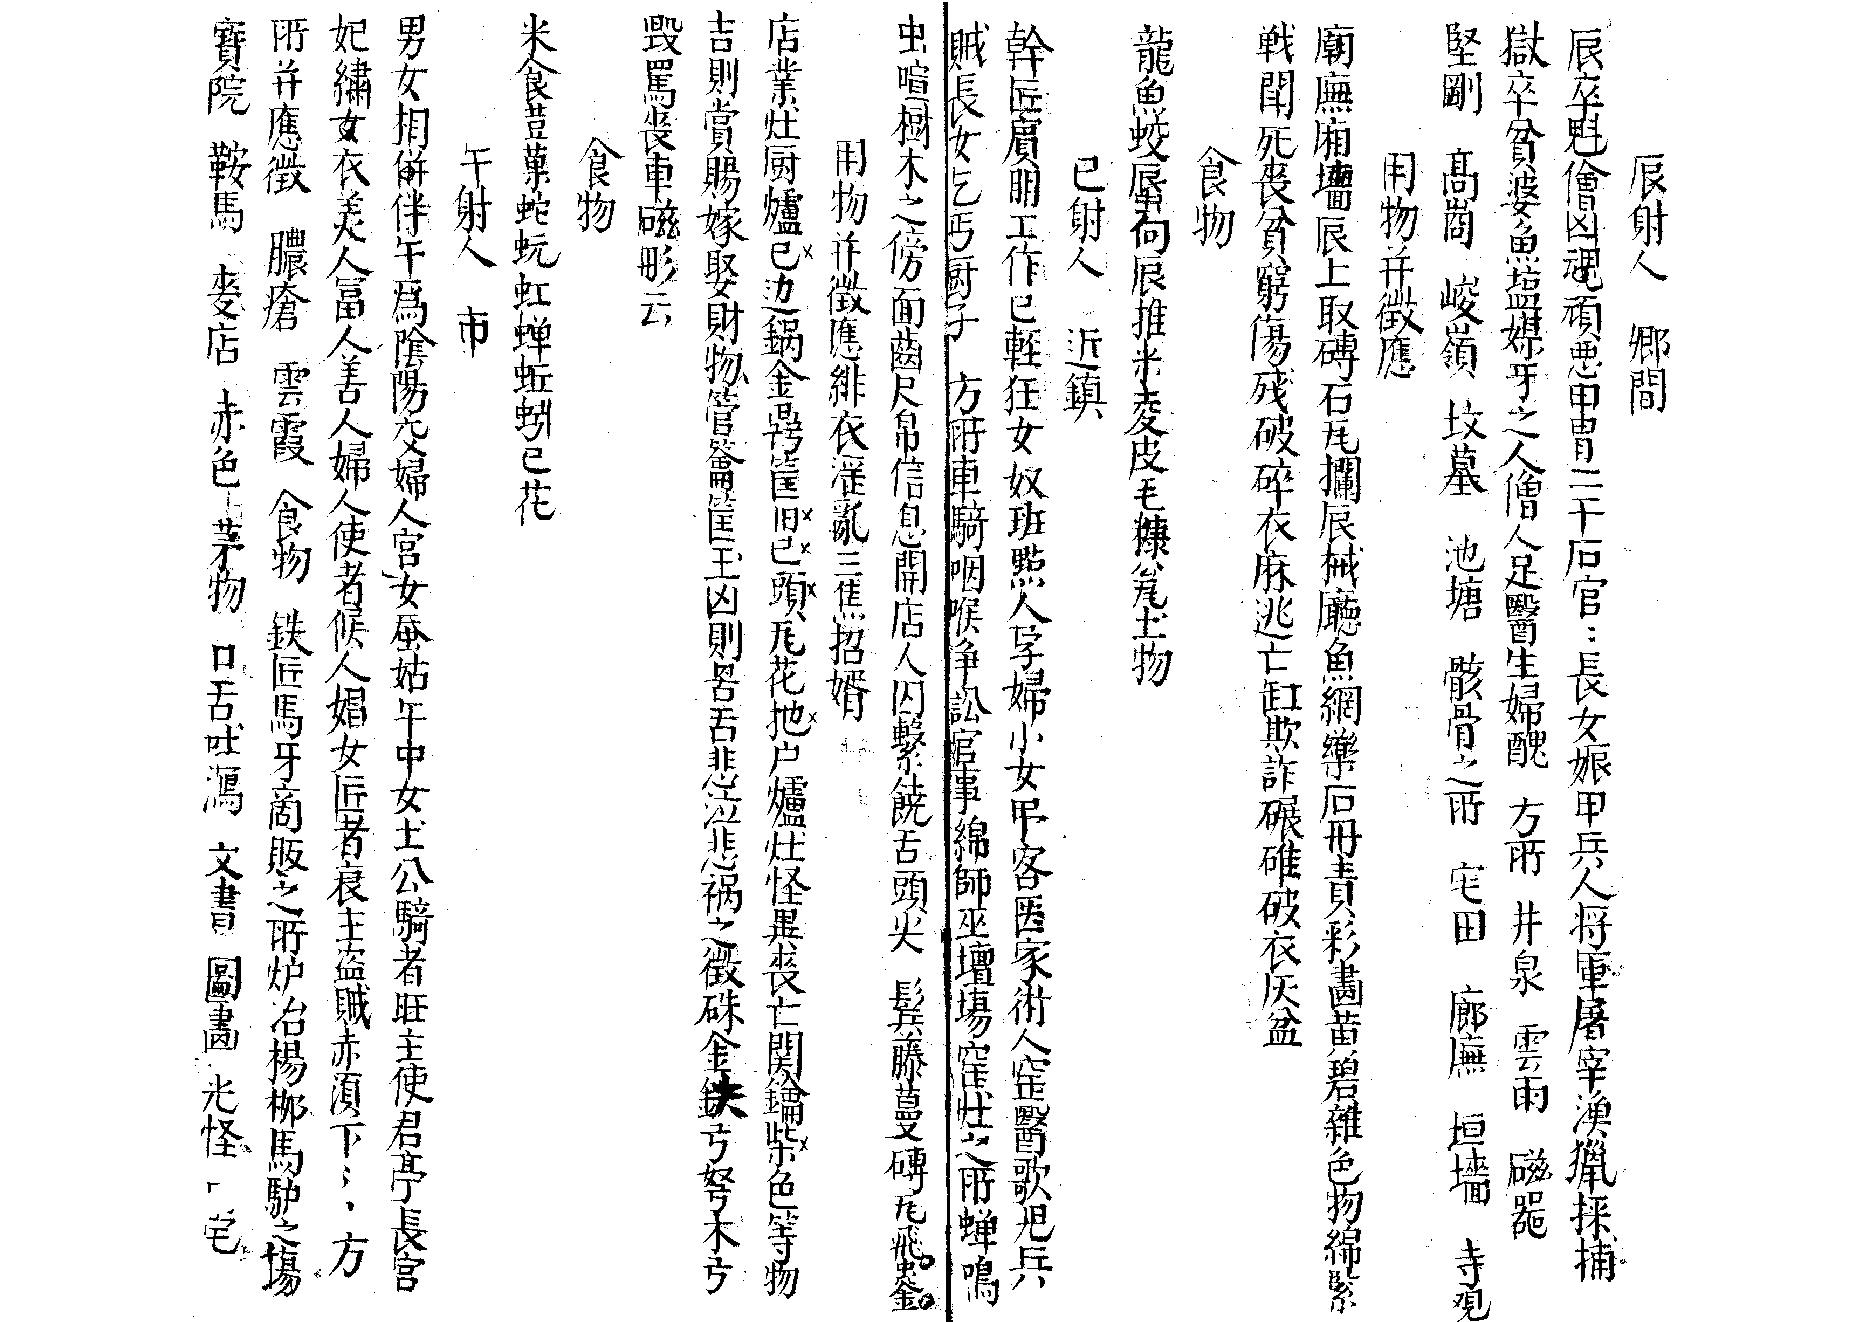 辰射人 鄉間
辰卒魁儈凶魂頑惡甲冑二千石官長女娠甲兵人将軍屠宰漁獵採捕
獄卒貧婆魚塩媒牙之人僧人足醫生婦醜 方所 井泉 雲雨 磁器
堅剛 髙崗 峻嶺 坟墓 池塘 骸骨之所 宅田 廊廡 垣墻 寺观
用物并徵應
廟廡廂墻辰上取磚石瓦攔辰械廳魚網藥石冊責彩畵苗碧雜色物綿緊
戦閗死喪貧窮傷殘破碎衣麻逃亡缸欺詐碾碓破衣灰盆
食物
龍魚蛟辰推米麦皮毛糠瓮土物
巳射人 近鎮
幹匠賓朋工作巳輕狂女奴班點人孕婦小女甲客医家術人窑醫歌児兵
賊長女乞丐厨子 方所車騎咽喉争訟官事綿師巫壇場窑灶之所蝉鳴
虫喧樹木之傍面齒尺帛信息開店人囚繫饒舌頭火 髮藤蔓磚瓦飛
用物并徵應緋衣淫亂三焦招婿
店業灶厨爐巳边鍋金筐旧巳頭瓦花地户爐灶怪異喪亡関鑰柴色等物
吉則賞賜嫁娶財物管籥筐王凶則咒舌悲泣悲祸之徵硃金鉄弓弩木弓
毀罵喪車磁形云
食物
米食荳菓蛇蚖虹蝉蚯蚓巳花
午射人 市
男女相併伴午爲陰陽交婦人宮女蚕姑午中女土公騎者旺主使君亭長宫
妃繡女衣美人富人善人婦人使者候人娼女匠者哀主盗賊赤湏下方
所并應徵 膿瘡 雲霞 食物 鉄匠馬牙商販之所炉冶楊柳馬馿之塲
寳院 鞍馬 麥店 赤色 茅物 口舌吐瀉 文書 圖畵 光怪 宅